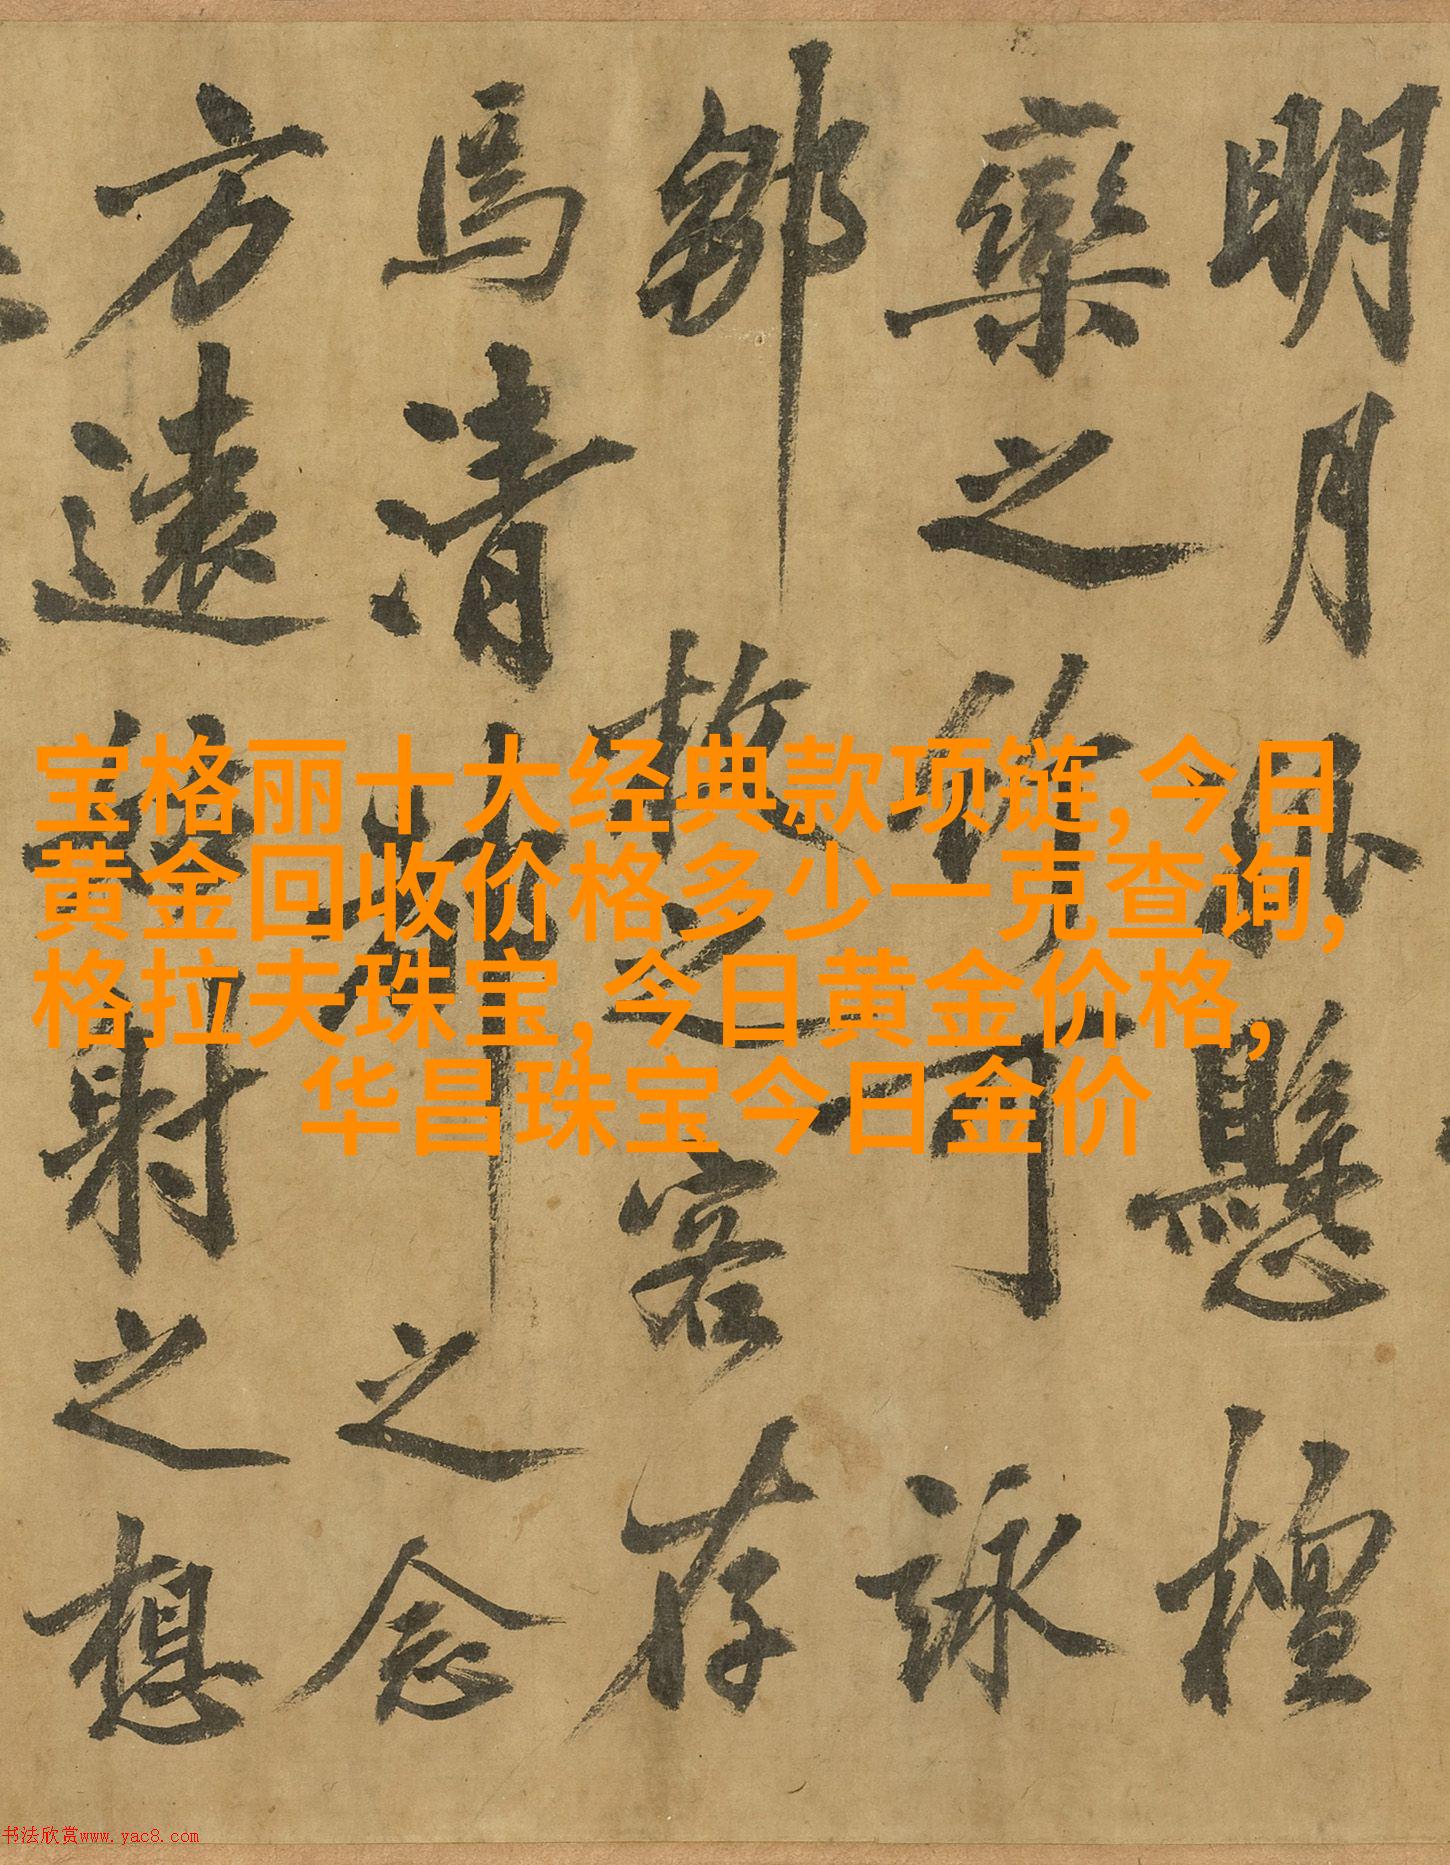 明月外懸檀
欒之竹可詠
鄒枚之客存
馬清
之念
方遠
射之想
宝格丽十大经典款项链,今日
黄金回收价格多少一克查询,
格拉夫珠宝,今日黄金价格,
华昌珠宝今日金价
书法欣赏www.yac8.com